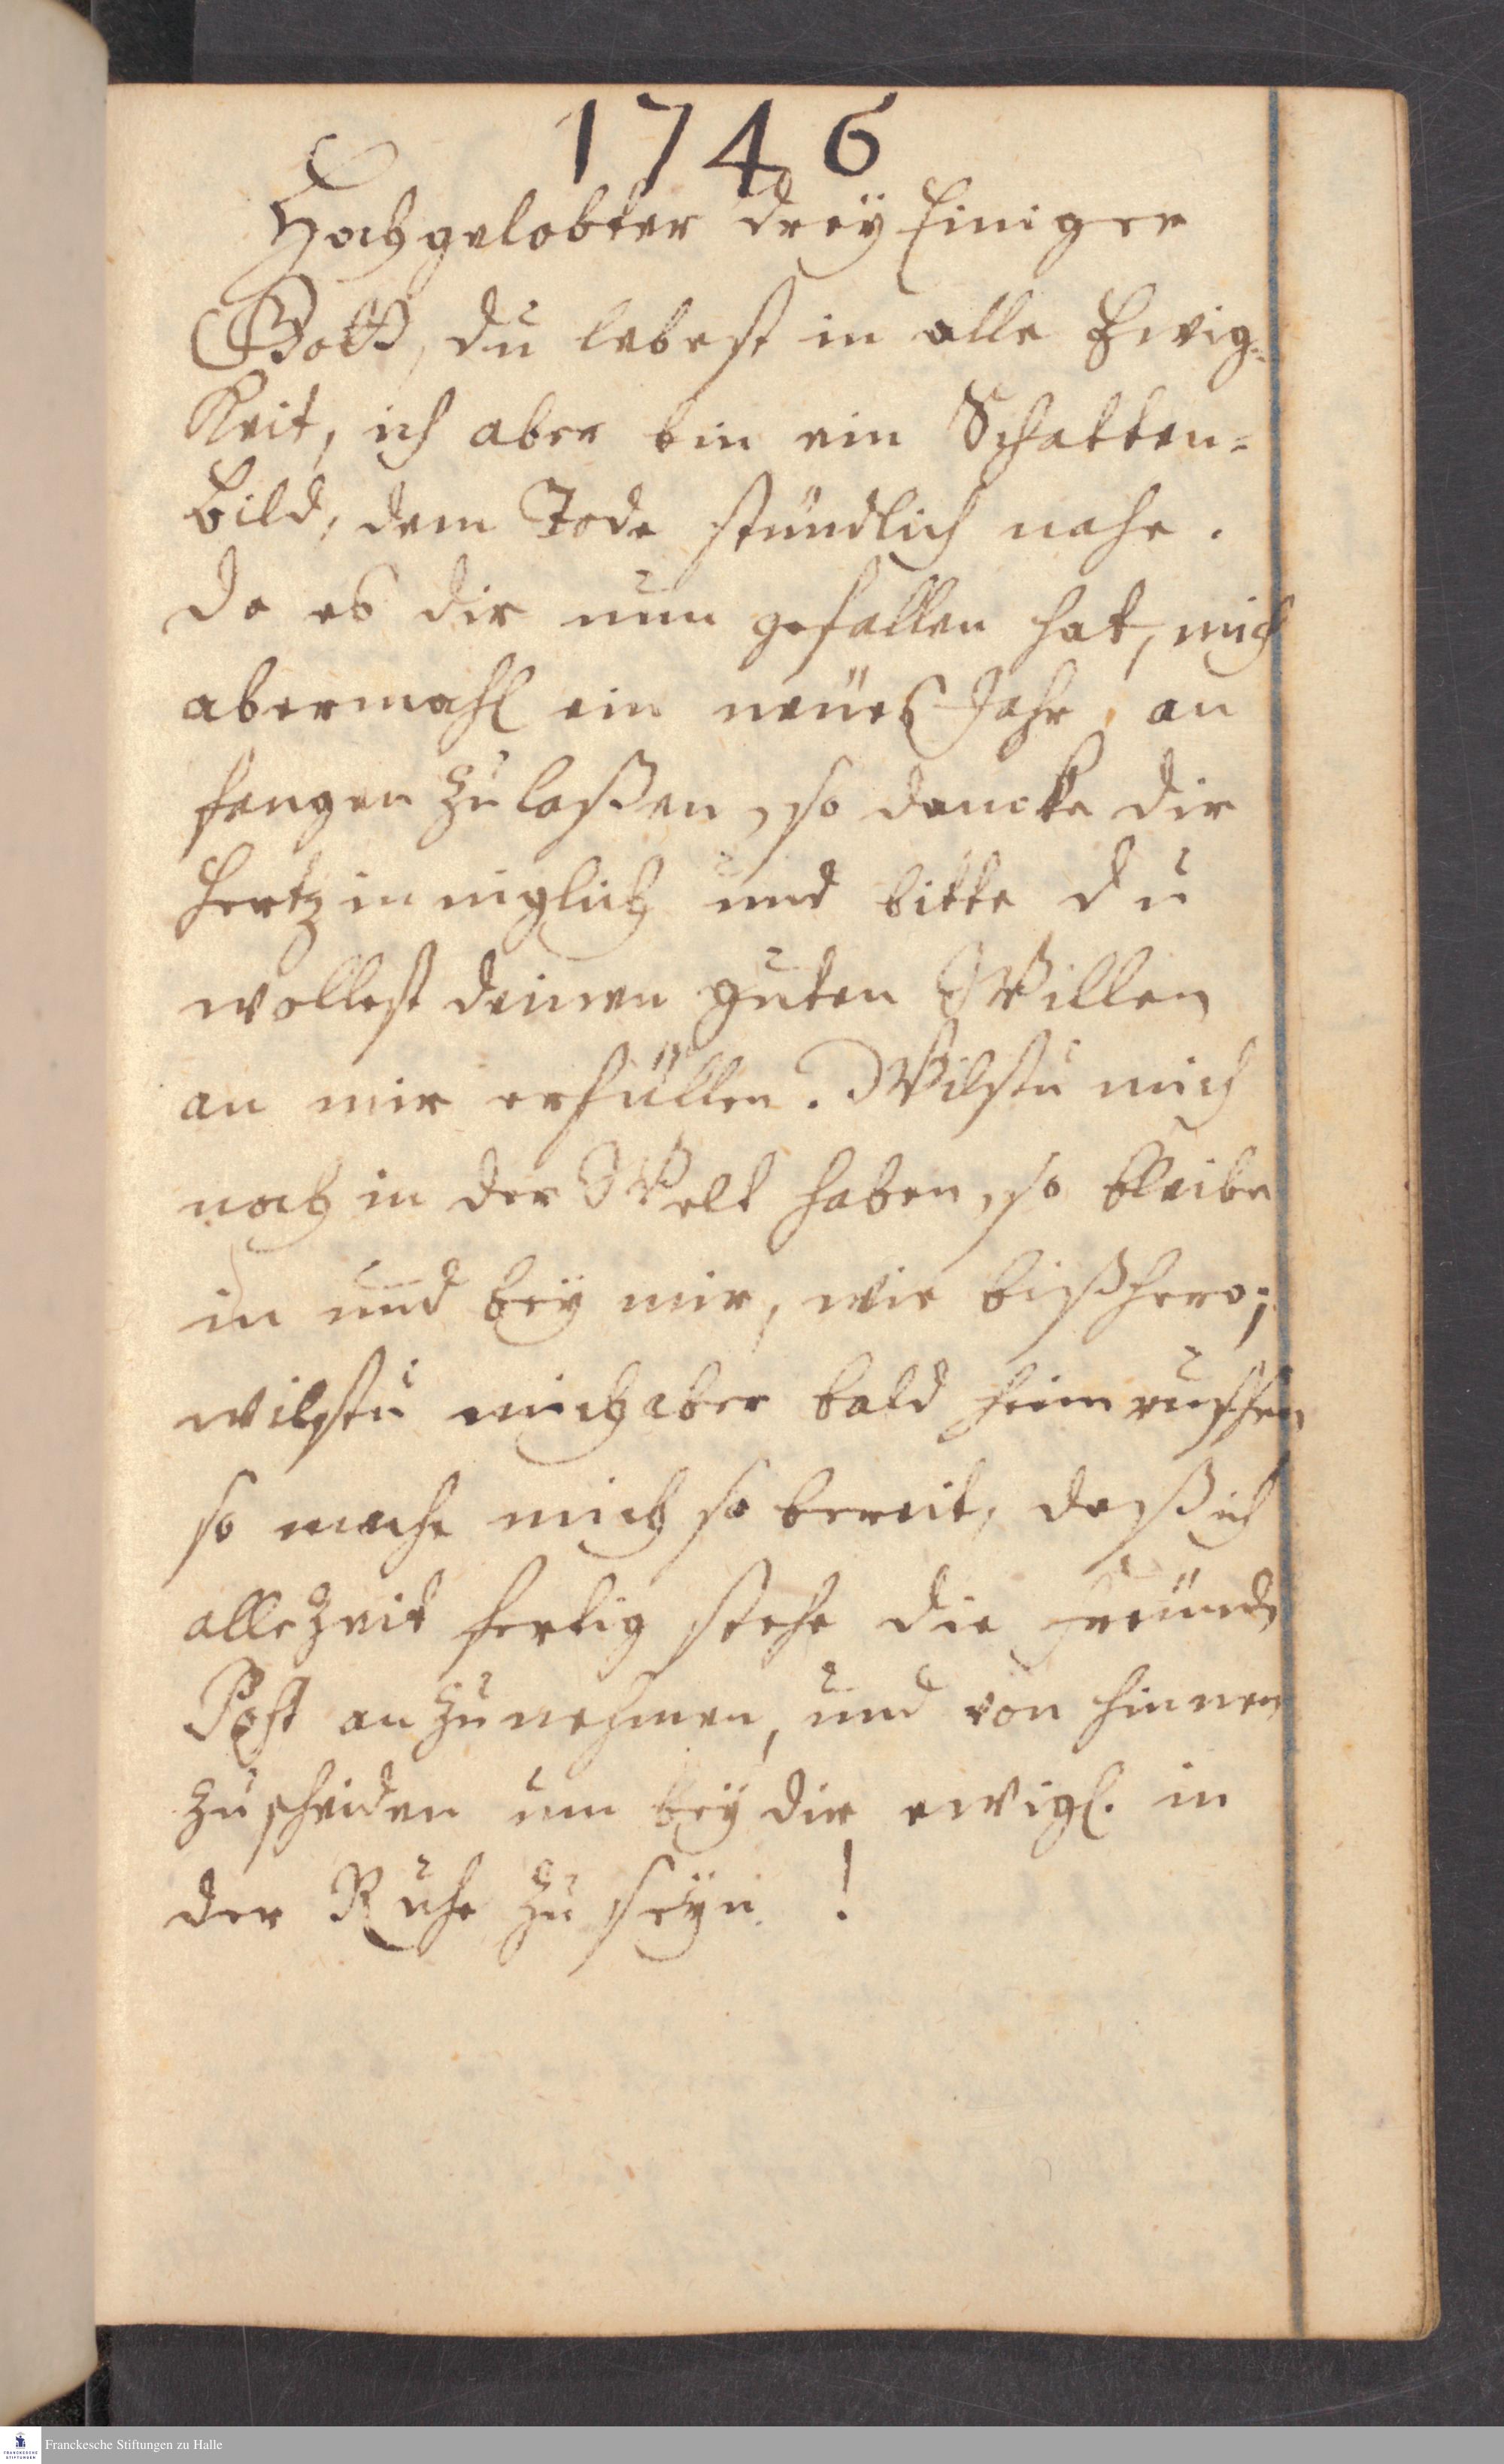 1746
Hochgelobter dreÿ Einiger
Gott, du lebest in alle Ewig=
Keit, ich aber bin ein Schatten=
Bild, dem Tode stündlich nahe.
Da es dir nun gefallen hat, mich
abermahl ein neües Jahr, an
fangen zu laßen, so dancke dir
hertzinniglich und bitte du
wollest deinen guten Willen
an mir erfüllen. Wilstu mich
noch in der Welt haben, so bleibe
in und beÿ mir, wie bißhero;
wilstu mich aber bald heim ruffen
so mache mich so bereit, daß ich
allezeit fertig stehe die Freüden
Post anzunehmen, und von hinnen
zu scheiden um beÿ dir ewigl. in
der Ruhe zu seÿn !
FRANCKESCHE
STIFTUNGEN
Franckesche Stiftungen zu Halle